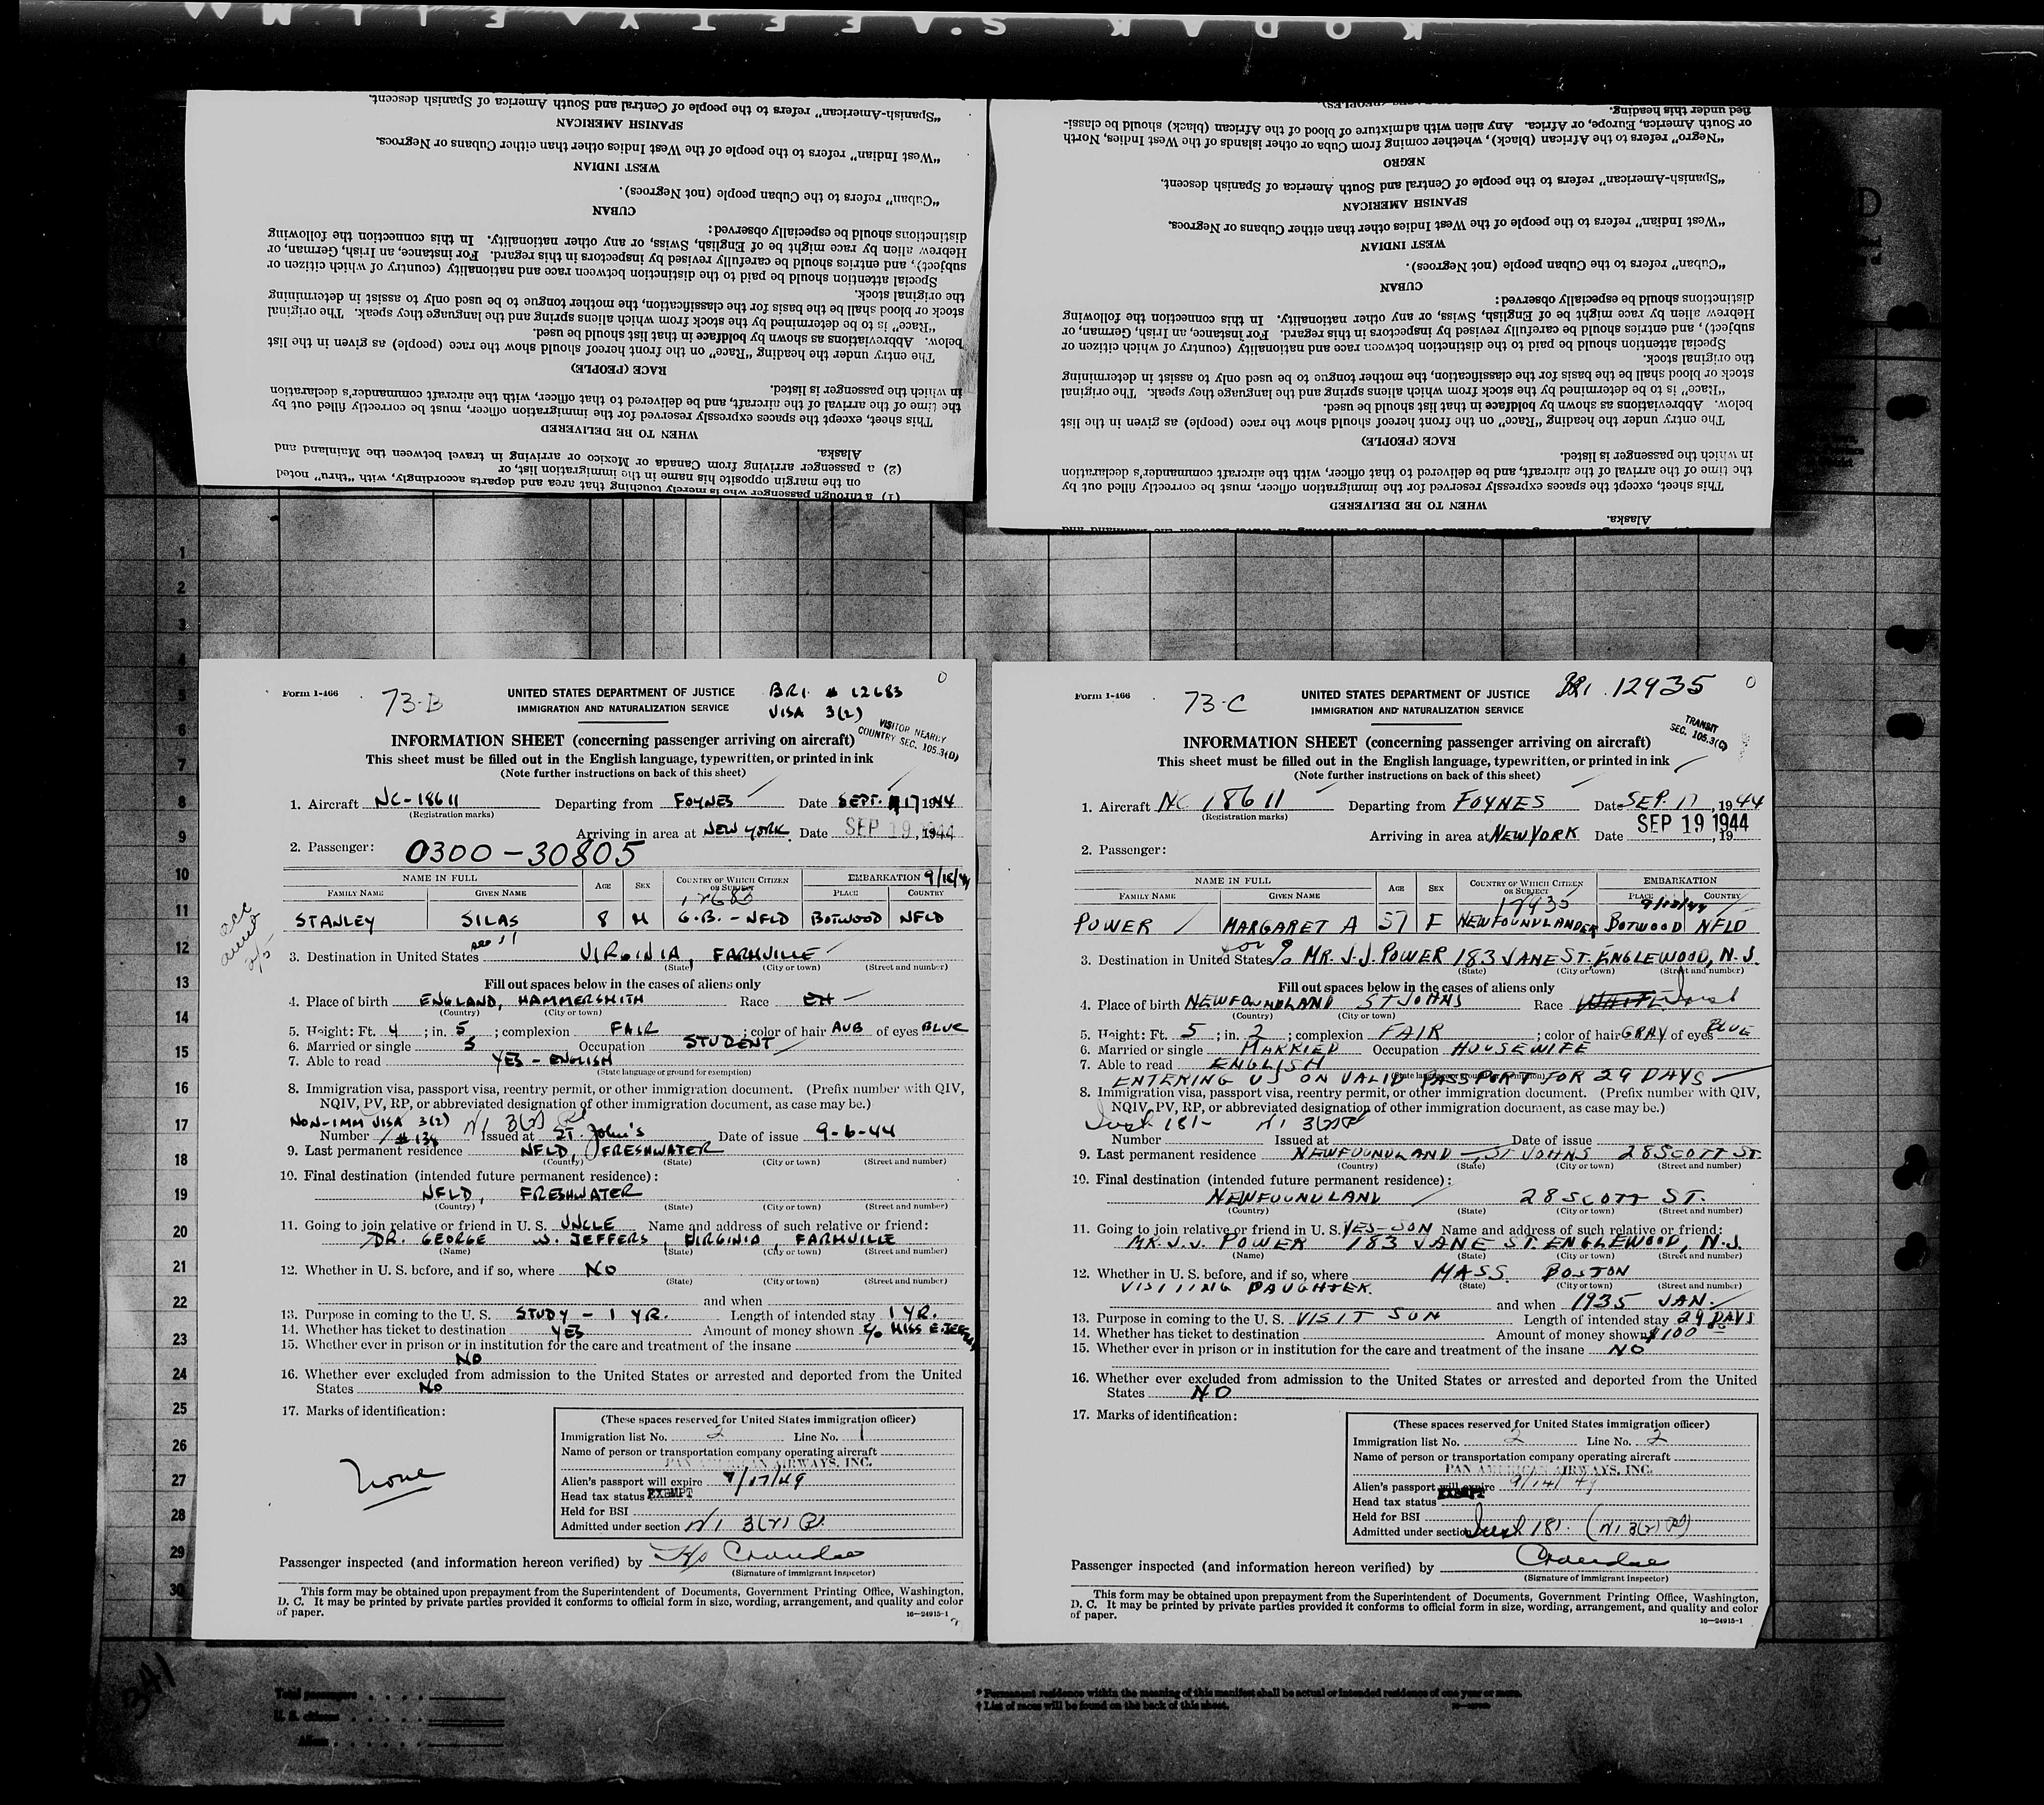 KODAK SAFETY FILM
"Spanish-American" refers to the people of Central and South America of Spanish descent.
SPANISH AMERICAN
"West Indian" refers to the people of the West Indies other than either Cubans or Negroes.
WEST INDIAN
"Cuban" refers to the Cuban people (not Negroes).
CUBAN
distinctions should be especially observed:
Hebrew alien by race might be of English, Swiss, or any other nationality. In this connection the following
subject), and entries should be carefully revised by inspectors in this regard. For instance, an Irish, German, or
Special attention should be paid to the distinction between race and nationality (country of which citizen or
the original stock.
stock or blood shall be the basis for the classification, the mother tongue to be used only to assist in determining
"Race" is to be determined by the stock from which aliens spring and the language they speak. The original
below. Abbreviations as shown by boldface in that list should be used.
The entry under the heading "Race" on the front hereof should show the race (people) as given in the list
RACE (PEOPLE)
in which the passenger is listed.
the time of the arrival of the aircraft, and be delivered to that officer, with the aircraft commander's declaration
This sheet, except the spaces expressly reserved for the immigration officer, must be correctly filled out by
WHEN TO BE DELIVERED
Alaska.
(2) a passenger arriving from Canada or Mexico or arriving in travel between the Mainland and
on the margin opposite his name in the immigration list, or
(1) a through passenger who is merely touching that area and departs accordingly, with "thru" noted
fied under this heading.
or South America, Europe, or Africa. Any alien with admixture of blood of the African (black) should be classi-
"Negro" refers to the African (black), whether coming from Cuba or other islands of the West Indies, North
NEGRO
"Spanish-American" refers to the people of Central and South America of Spanish descent.
SPANISH AMERICAN
"West Indian" refers to the people of the West Indies other than either Cubans or Negroes.
WEST INDIAN
"Cuban" refers to the Cuban people (not Negroes).
CUBAN
distinctions should be especially observed:
Hebrew alien by race might be of English, Swiss, or any other nationality. In this connection the following
subject), and entries should be carefully revised by inspectors in this regard. For instance, an Irish, German, or
Special attention should be paid to the distinction between race and nationality (country of which citizen or
the original stock.
stock or blood shall be the basis for the classification, the mother tongue to be used only to assist in determining
"Race" is to be determined by the stock from which aliens spring and the language they speak. The original
below. Abbreviations as shown by boldface in that list should be used.
The entry under the heading "Race" on the front hereof should show the race (people) as given in the list
RACE (PEOPLE)
in which the passenger is listed.
the time of the arrival of the aircraft, and be delivered to that officer, with the aircraft commander's declaration
This sheet, except the spaces expressly reserved for the immigration officer, must be correctly filled out by
WHEN TO BE DELIVERED
Alaska.
1
2
3
4
5
6
7
8
9
10
11
12
13
14
15
16
17
18
19
20
21
22
23
24
25
26
27
28
29
30
341
Form I-466 73-B
UNITED STATES DEPARTMENT OF JUSTICE BRI # 12683
IMMIGRATION AND NATURALIZATION SERVICE VISA 3(2)
VISITOR NEARBY
COUNTRY SEC. 105.3(D)
INFORMATION SHEET (concerning passenger arriving on aircraft)
This sheet must be filled out in the English language, typewritten, or printed in ink
(Note further instructions on back of this sheet)
1. Aircraft NC-18611 Departing from FOYNES Date SEPT. 17 1944
(Registration marks)
Arriving in area at NEW YORK Date SEP 19 1944
2. Passenger: 0300-30805
NAME IN FULL AGE SEX COUNTRY OF WHICH CITIZEN OR SUBJECT EMBARKATION
FAMILY NAME GIVEN NAME PLACE COUNTRY
12683
STANLEY SILAS 8 M G.B. - NFLD BOTWOOD NFLD
see 11
3. Destination in United States VIRGINIA, FARMVILLE
(State) (City or town) (Street and number)
Fill out spaces below in the cases of aliens only
4. Place of birth ENGLAND, HAMMERSMITH Race EH
(Country) (City or town)
5. Height: Ft. 4; in. 5; complexion FAIR; color of hair AUB of eyes BLUE
6. Married or single S Occupation STUDENT
7. Able to read YES - ENGLISH
(State language or ground for exemption)
8. Immigration visa, passport visa, reentry permit, or other immigration document. (Prefix number with QIV,
NQIV, PV, RP, or abbreviated designation of other immigration document, as case may be.)
NON-IMM VISA 3(2)
Number #138 Issued at ST. John's Date of issue 9-6-44
9. Last permanent residence NFLD, FRESHWATER
(Country) (State) (City or town) (Street and number)
10. Final destination (intended future permanent residence):
NFLD, FRESHWATER
(Country) (State) (City or town) (Street and number)
11. Going to join relative or friend in U. S. UNCLE Name and address of such relative or friend:
DR. GEORGE W. JEFFERS, VIRGINIA, FARMVILLE
(Name) (State) (City or town) (Street and number)
12. Whether in U. S. before, and if so, where NO
(State) (City or town) (Street and number)
and when
13. Purpose in coming to the U. S. STUDY - 1 YR. Length of intended stay 1 YR.
14. Whether has ticket to destination YES Amount of money shown c/o MISS E.
15. Whether ever in prison or in institution for the care and treatment of the insane
NO
16. Whether ever excluded from admission to the United States or arrested and deported from the United
States No
17. Marks of identification:
None
(These spaces reserved for United States immigration officer)
Immigration list No. 2 Line No. 1
Name of person or transportation company operating aircraft
PAN AMERICAN AIRWAYS, INC.
Alien's passport will expire 7/17/49
Head tax status EXEMPT
Held for BSI
Admitted under section
Passenger inspected (and information hereon verified) by
(Signature of immigrant inspector)
This form may be obtained upon prepayment from the Superintendent of Documents, Government Printing Office, Washington,
D. C. It may be printed by private parties provided it conforms to official form in size, wording, arrangement, and quality and color
of paper. 16—24915-1
Form I-466 73-C
UNITED STATES DEPARTMENT OF JUSTICE BRI. 12935
IMMIGRATION AND NATURALIZATION SERVICE
TRANSIT
SEC. 105.3(C)
INFORMATION SHEET (concerning passenger arriving on aircraft)
This sheet must be filled out in the English language, typewritten, or printed in ink
(Note further instructions on back of this sheet)
1. Aircraft NC 18611 Departing from FOYNES Date SEP. 17, 1944
(Registration marks)
Arriving in area at NEW YORK Date SEP 19 1944, 19
2. Passenger:
NAME IN FULL AGE SEX COUNTRY OF WHICH CITIZEN OR SUBJECT EMBARKATION
FAMILY NAME GIVEN NAME PLACE COUNTRY
12935
POWER MARGARET A 57 F NEWFOUNDLANDER BOTWOOD NFLD
3. Destination in United States % MR. J.J. POWER 183 JANE ST. ENGLEWOOD, N.J.
(State) (City or town) (Street and number)
Fill out spaces below in the cases of aliens only
4. Place of birth NEWFOUNDLAND ST JOHNS Race WHITE Irish
(Country) (City or town)
5. Height: Ft. 5; in. 2; complexion FAIR; color of hair GRAY of eyes BLUE
6. Married or single MARRIED Occupation HOUSEWIFE
7. Able to read ENGLISH
ENTERING US ON VALID PASSPORT FOR 29 DAYS
8. Immigration visa, passport visa, reentry permit, or other immigration document. (Prefix number with QIV,
NQIV, PV, RP, or abbreviated designation of other immigration document, as case may be.)
Number Issued at Date of issue
9. Last permanent residence NEWFOUNDLAND - ST JOHNS 28 SCOTT ST.
(Country) (State) (City or town) (Street and number)
10. Final destination (intended future permanent residence):
NEWFOUNDLAND 28 SCOTT ST.
(Country) (State) (City or town) (Street and number)
11. Going to join relative or friend in U. S. YES-SON Name and address of such relative or friend:
MR. J.J. POWER 183 JANE ST. ENGLEWOOD, N.J.
(Name) (State) (City or town) (Street and number)
12. Whether in U. S. before, and if so, where MASS. BOSTON
(State) (City or town) (Street and number)
VISITING DAUGHTER. and when 1935 JAN.
13. Purpose in coming to the U. S. VISIT SON Length of intended stay 29 DAYS
14. Whether has ticket to destination Amount of money shown $100
15. Whether ever in prison or in institution for the care and treatment of the insane NO
16. Whether ever excluded from admission to the United States or arrested and deported from the United
States NO
17. Marks of identification:
(These spaces reserved for United States immigration officer)
Immigration list No. 2 Line No. 2
Name of person or transportation company operating aircraft
PAN AMERICAN AIRWAYS, INC.
Alien's passport will expire 9/14/49
Head tax status EXEMPT
Held for BSI
Admitted under section
Passenger inspected (and information hereon verified) by
(Signature of immigrant inspector)
This form may be obtained upon prepayment from the Superintendent of Documents, Government Printing Office, Washington,
D. C. It may be printed by private parties provided it conforms to official form in size, wording, arrangement, and quality and color
of paper. 16—24915-1
Total passengers
U. S. citizens
Aliens
* Permanent residence within the meaning of this manifest shall be actual or intended residence of one year or more.
† List of races will be found on the back of this sheet.